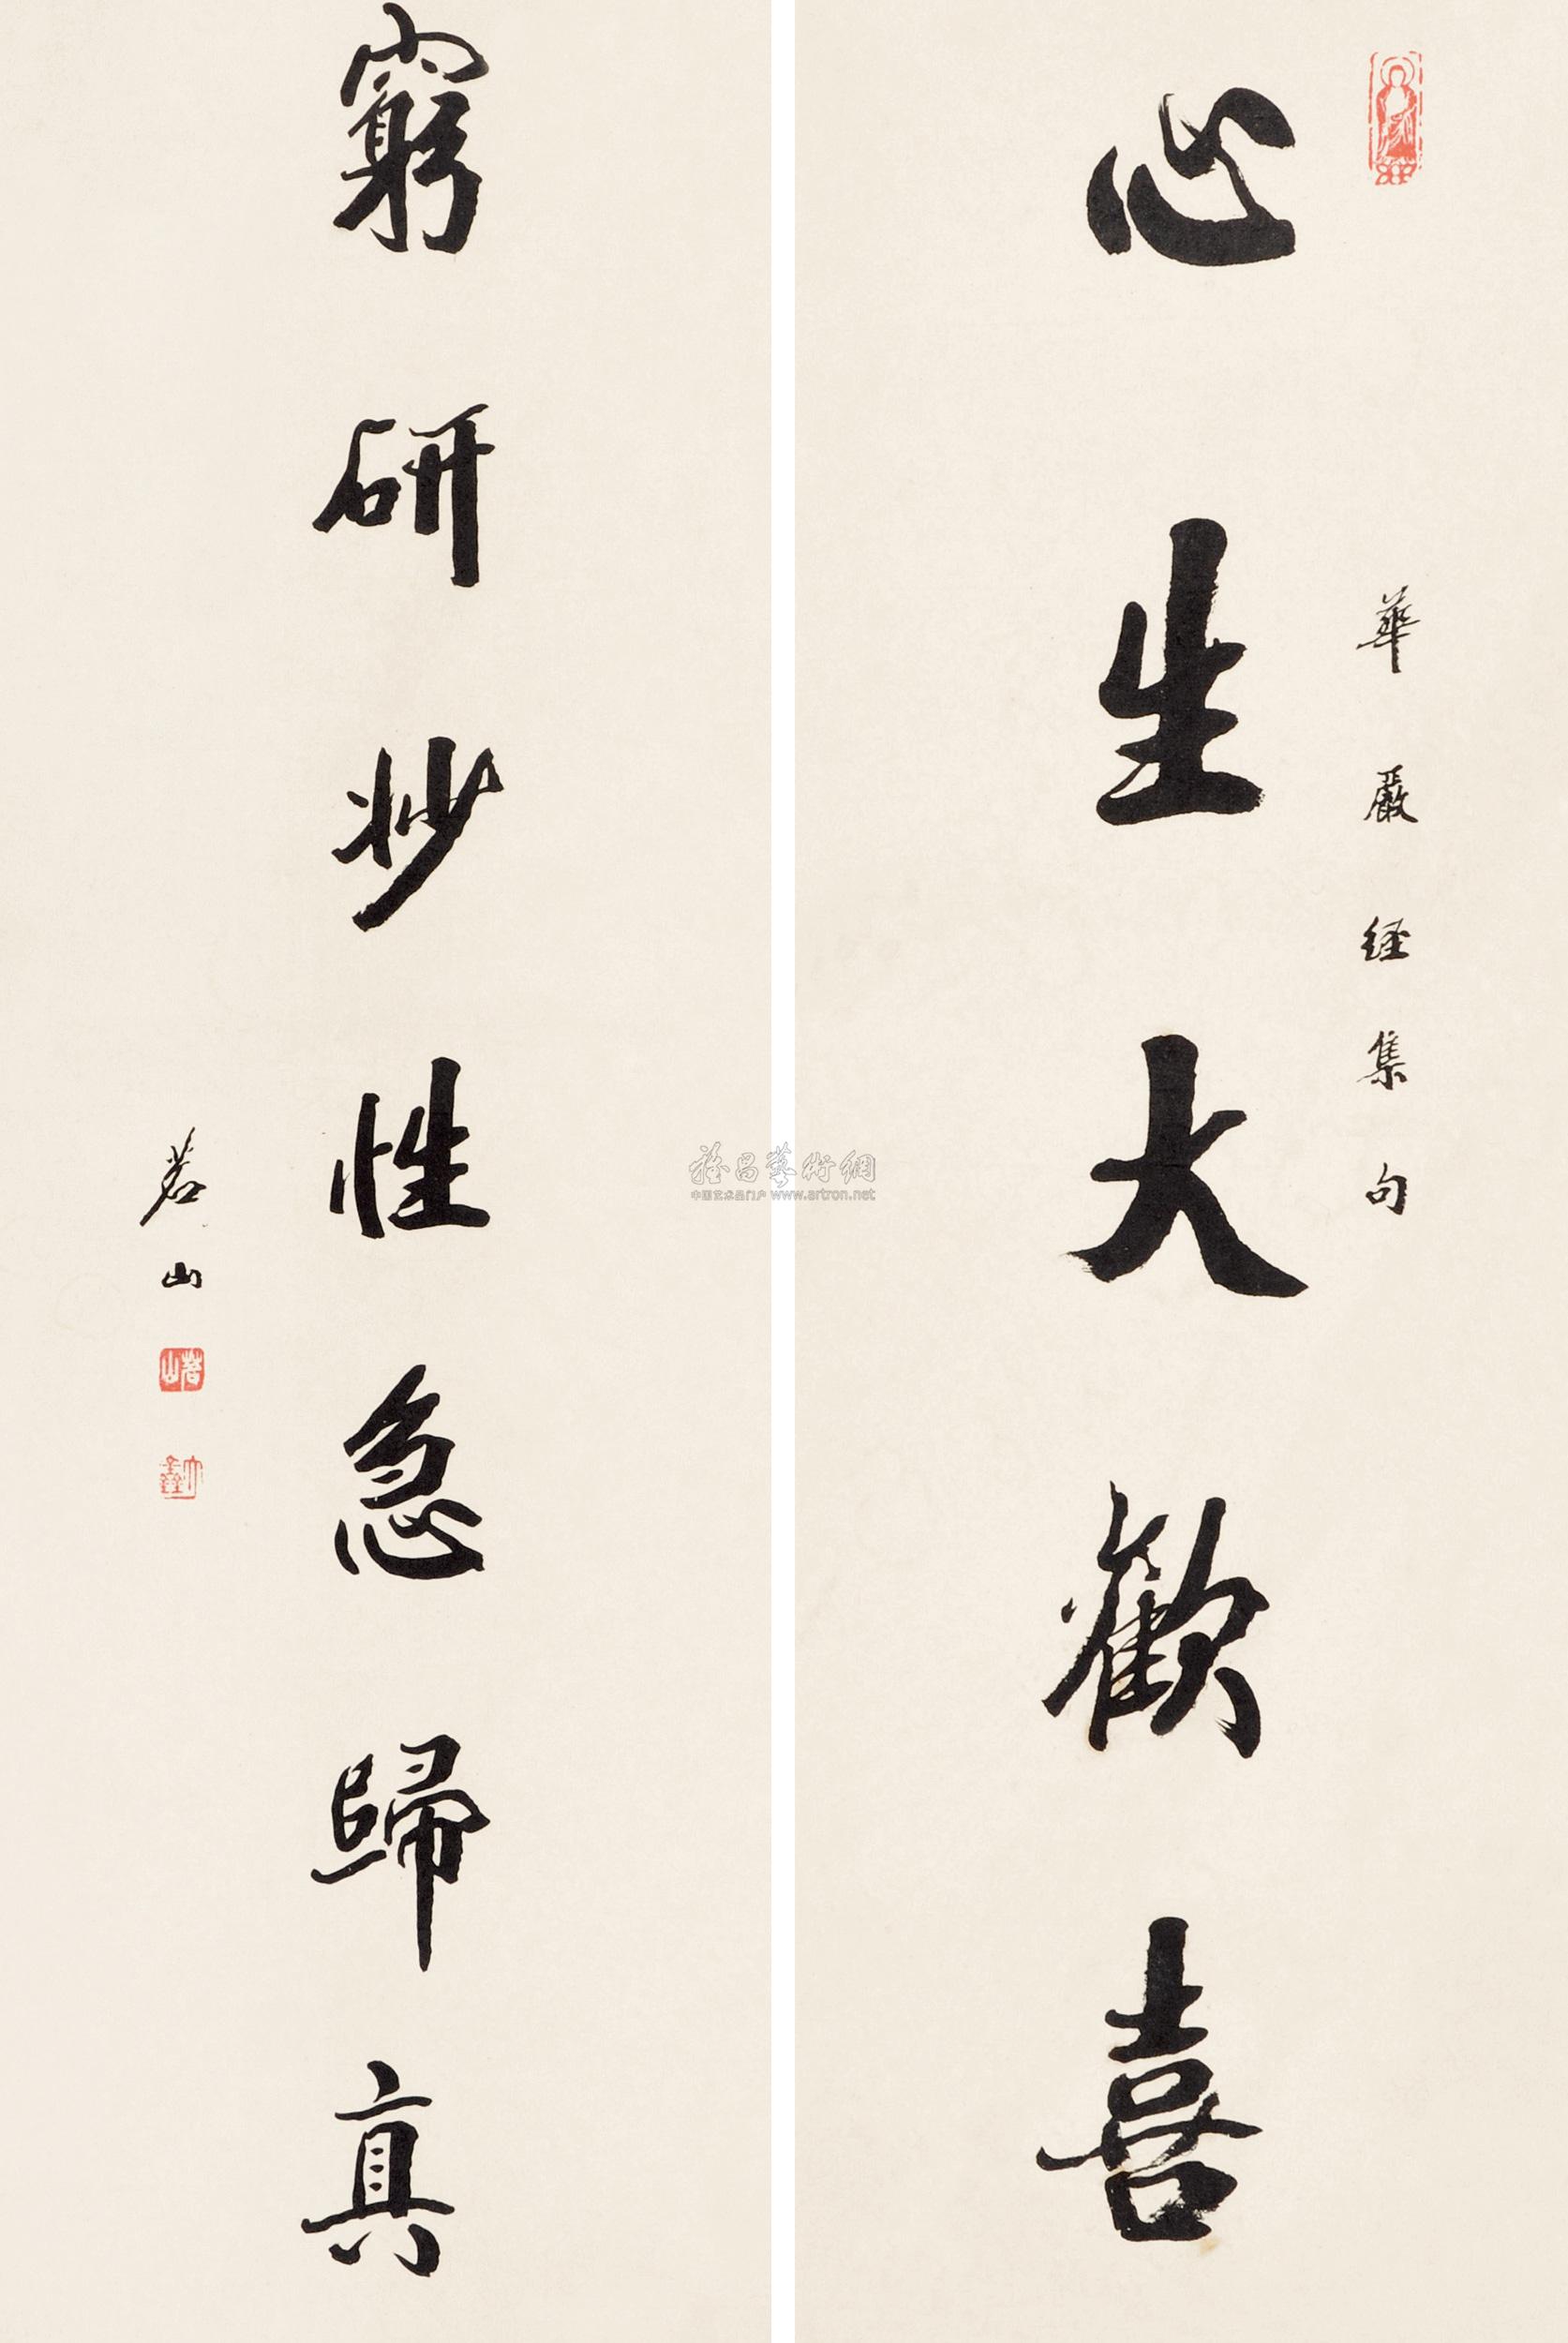 華嚴經集句
心生大歡喜
窮研妙性急歸真
茗山
茗山
雅昌藝術網
中国艺术品门户 www.artron.net